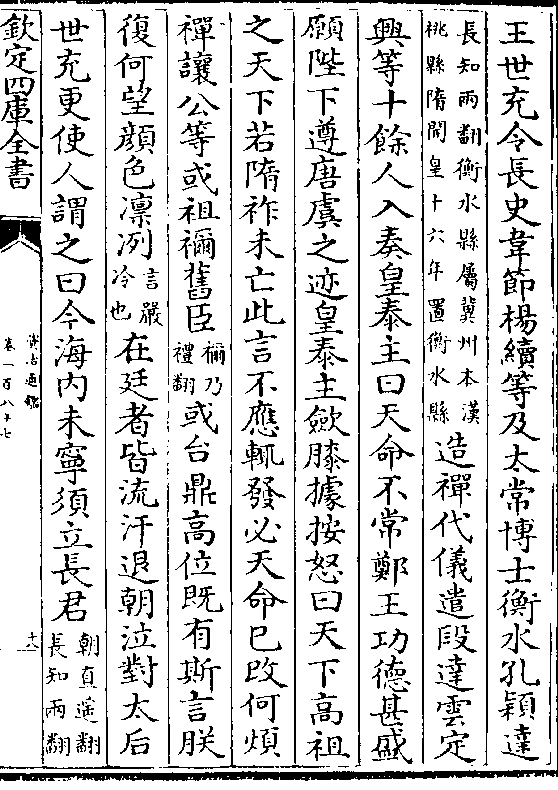 王世充令長史韋節楊續等及太常博士衡水孔穎達
長知兩翻衡水縣屬冀州本漢
桃縣隋開皇十六年置衡水縣
造禪代儀遣段達雲定
興等十餘人入奏皇泰主曰天命不常鄭王功德甚盛
願陛下遵唐虞之迹皇泰主斂膝據按怒曰天下高祖
之天下若隋祚未亡此言不應輒發必天命已改何煩
禪讓公等或祖禰舊臣
禰乃
禮翻
或台鼎高位既有斯言朕
復何望顔色凛冽
言嚴
冷也
在廷者皆流汗退朝泣對太后
世充更使人謂之曰今海内未寧須立長君
朝直遥翻
長知兩翻
欽定四庫全書
資治通鑑
卷一百八十七